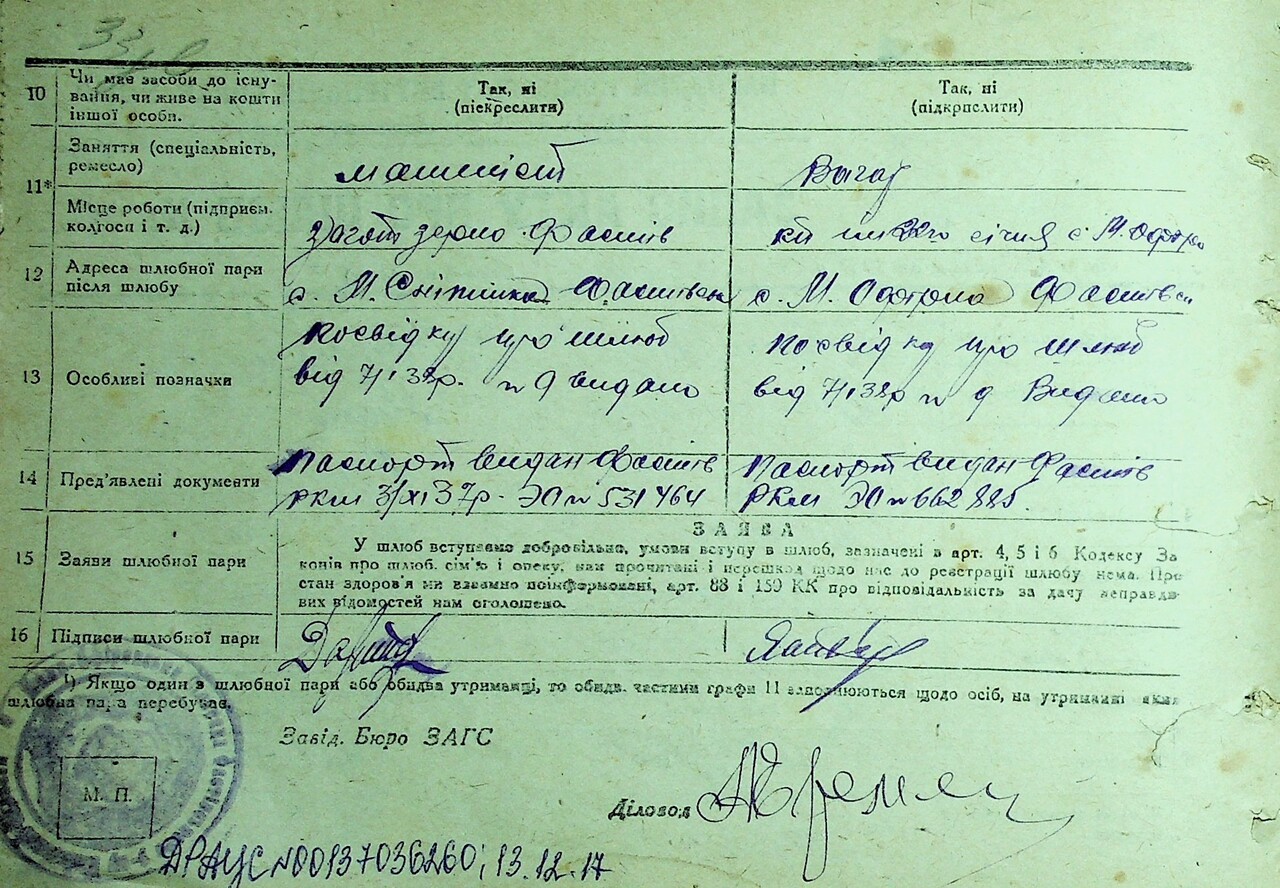 10 Чи має засоби до існу-
вання, чи живе на кошти
іншої особи.
Так, ні
(піскреслити)
Так, ні
(підкрпслити)
11* Заняття (спеціальність,
ремесло)
машиніст
Місце роботи (підприєм.
колгосп і т. д.)
Заготзерно Фастів
січня с. М.
12 Адреса шлюбної пари
після шлюбу
с. М. Снітинка
с. М.
13 Особливі позначки
посвідку про шлюб
від 7/І 38р. n 9 видано
посвідку про шлюб
від 7/І 38р n 9 Видано
14 Пред'явлені документи
Паспорт видан Фастів
РКМ 31/ХІ 37р. ЭО n 531464
Паспорт видан Фастів
РКМ
15 Заяви шлюбної пари
ЗАЯВА
У шлюб вступаємо добровільно, умови вступу в шлюб, зазначені в арт. 4, 5 і 6 Кодексу За
конів про шлюб. сім'ю і опеку, нам прочитані і перешкод щодо нас до реєстрації шлюбу нема. Про
стан здоров'я ми взаємно поінформовані, арт. 88 і 159 КК про відповідальність за дачу неправди-
вих відомостей нам оголошено.
16 Підписи шлюбної пари
¹) Якщо один з шлюбної пари або обидва утриманці, то обидв. частини графи 11 заповнюються щодо осіб, на утриманні яких
шлюбна пара перебуває.
Завід. Бюро ЗАГС
М. П.
Діловод
ДРАЦС N00137036260; 13.12.17